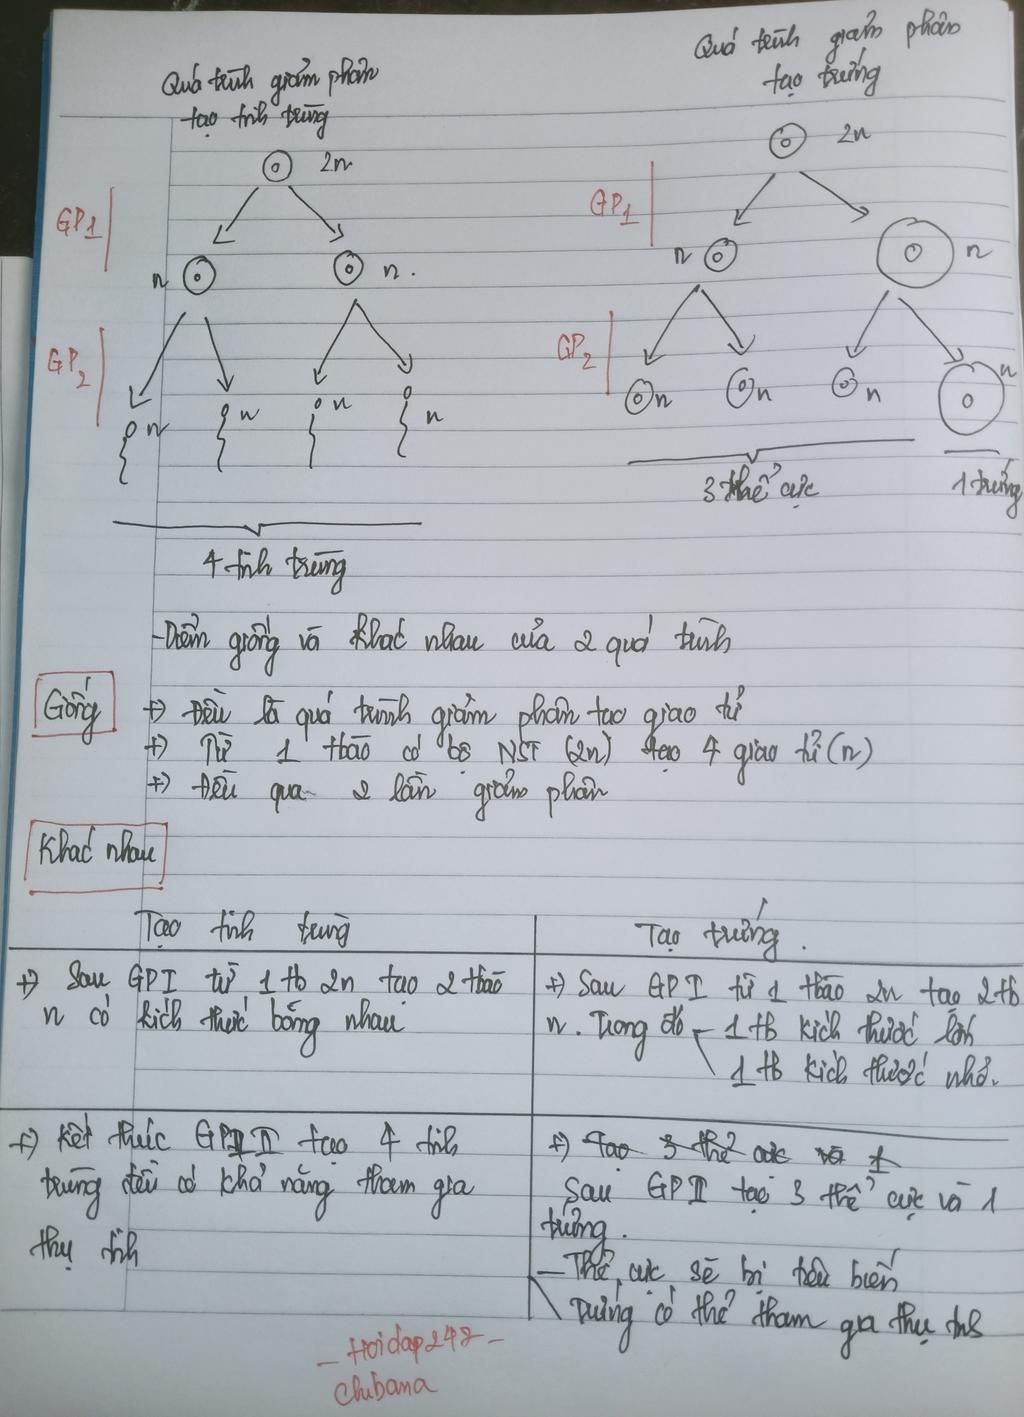 Quá trình giảm phân
tạo tinh trùng
2n
GP1
n
n.
GP2
n
n
n
n
4 tinh trùng
Quá trình giảm phân
tạo trứng
2n
GP1
n
n
GP2
n
n
n
n
3 thể cực
1 trứng
-Điểm giống và khác nhau của 2 quá trình
Giống
+) Đều là quá trình giảm phân tạo giao tử
+) Từ 1 tbào có bộ NST (2n) tạo 4 giao tử (n)
+) Đều qua 2 lần giảm phân
Khác nhau
Tạo tinh trùng
+) Sau GPI từ 1 tb 2n tạo 2 tbào
n có kích thước bằng nhau
+) Kết thúc GPII tạo 4 tinh
trùng đều có khả năng tham gia
thụ tinh
Tạo trứng.
+) Sau GPI từ 1 tbào 2n tạo 2 tb
n. Trong đó - 1 tb kích thước lớn
1 tb kích thước nhỏ.
+) Tạo 3 thể cực và 1
Sau GPII tạo 3 thể cực và 1
trứng.
- Thể cực sẽ bị tiêu biến
Trứng có thể tham gia thụ tinh
- Hoidap247 -
Chibana